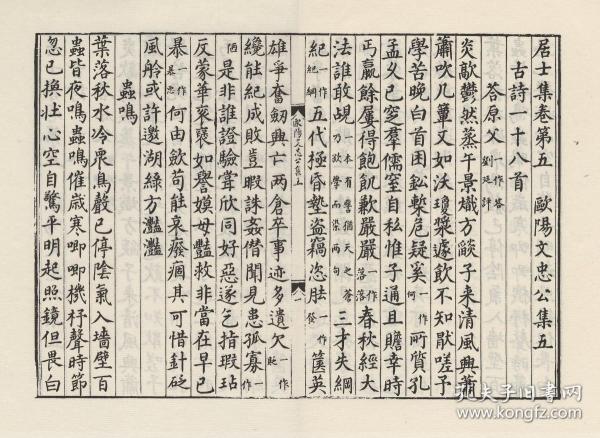 居士集卷第五　歐陽文忠公集五
古詩一十八首
荅原父一作荅劉廷評
炎歊鬱然蒸午景熾方燄子來清風興蕭
蕭吹几簟又如沃瓊漿遽飲不知猒嗟予
學苦晚白首困鈆槧危疑奚一作何所質孔
孟久已窆羣儒窒自私惟子通且贍幸時
丐贏餘屢得飽飢歉嚴嚴一作落落春秋經大
法誰敢覘一本有譬猶天之蒼乃欲學而漸兩句三才失綱
紀一作紀綱五代極昏墊盜竊恣胠一作發篋英
歐陽文忠公集五
雄爭奮劒興亡兩倉卒事迹多遺欠一作貶
纔能紀成敗豈暇誅姦僭聞見患孤寡一作陋
是非誰證驗甞欣同好惡遂乞指瑕玷
反蒙華衮褒如譽嫫母豔救非當在早已
暴一作暴惡何由斂苟能哀廢痼其可惜針砭
風舲或許邀湖綠方灩灩
蟲鳴
葉落秋水冷衆鳥聲已停陰氣入墻壁百
蟲皆夜鳴蟲鳴催歲寒唧唧機杼聲時節
忽已換壯心空自驚平明起照鏡但畏白
孔夫子旧书网
www.kongfz.com